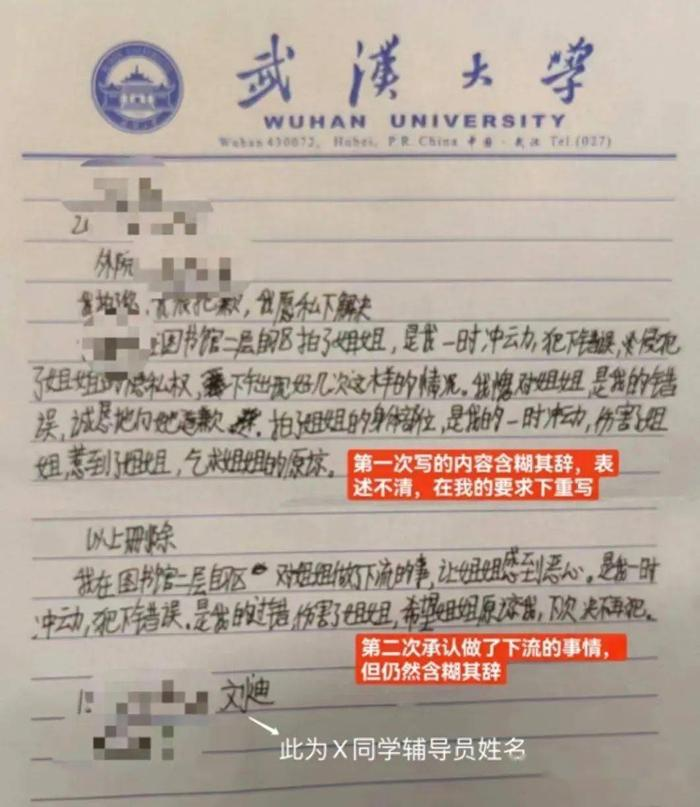 武漢大學
WUHAN UNIVERSITY
Wuhan 430072, Hubei, P.R. China 中国·武汉 Tel.(027)
外院
道歉，我愿私下解决
图书馆二层自习区拍了姐姐，是我一时冲动，犯下错误，侵犯
了姐姐的隐私权，下午出现好几次这样的情况。我愧对姐姐，是我的错
误，诚恳地向她道歉，拍了姐姐的身体部位，是我的一时冲动，伤害了姐
姐，惹到了姐姐，乞求姐姐的原谅。
第一次写的内容含糊其辞，表
述不清，在我的要求下重写
以上删除
我在图书馆二层自习区对姐姐做了下流的事，让姐姐感到恶心。是我一时
冲动，犯下错误。是我的过错，伤害了姐姐，希望姐姐原谅我，下次决不再犯。
第二次承认做了下流的事情，
但仍然含糊其辞
刘迪
此为X同学辅导员姓名